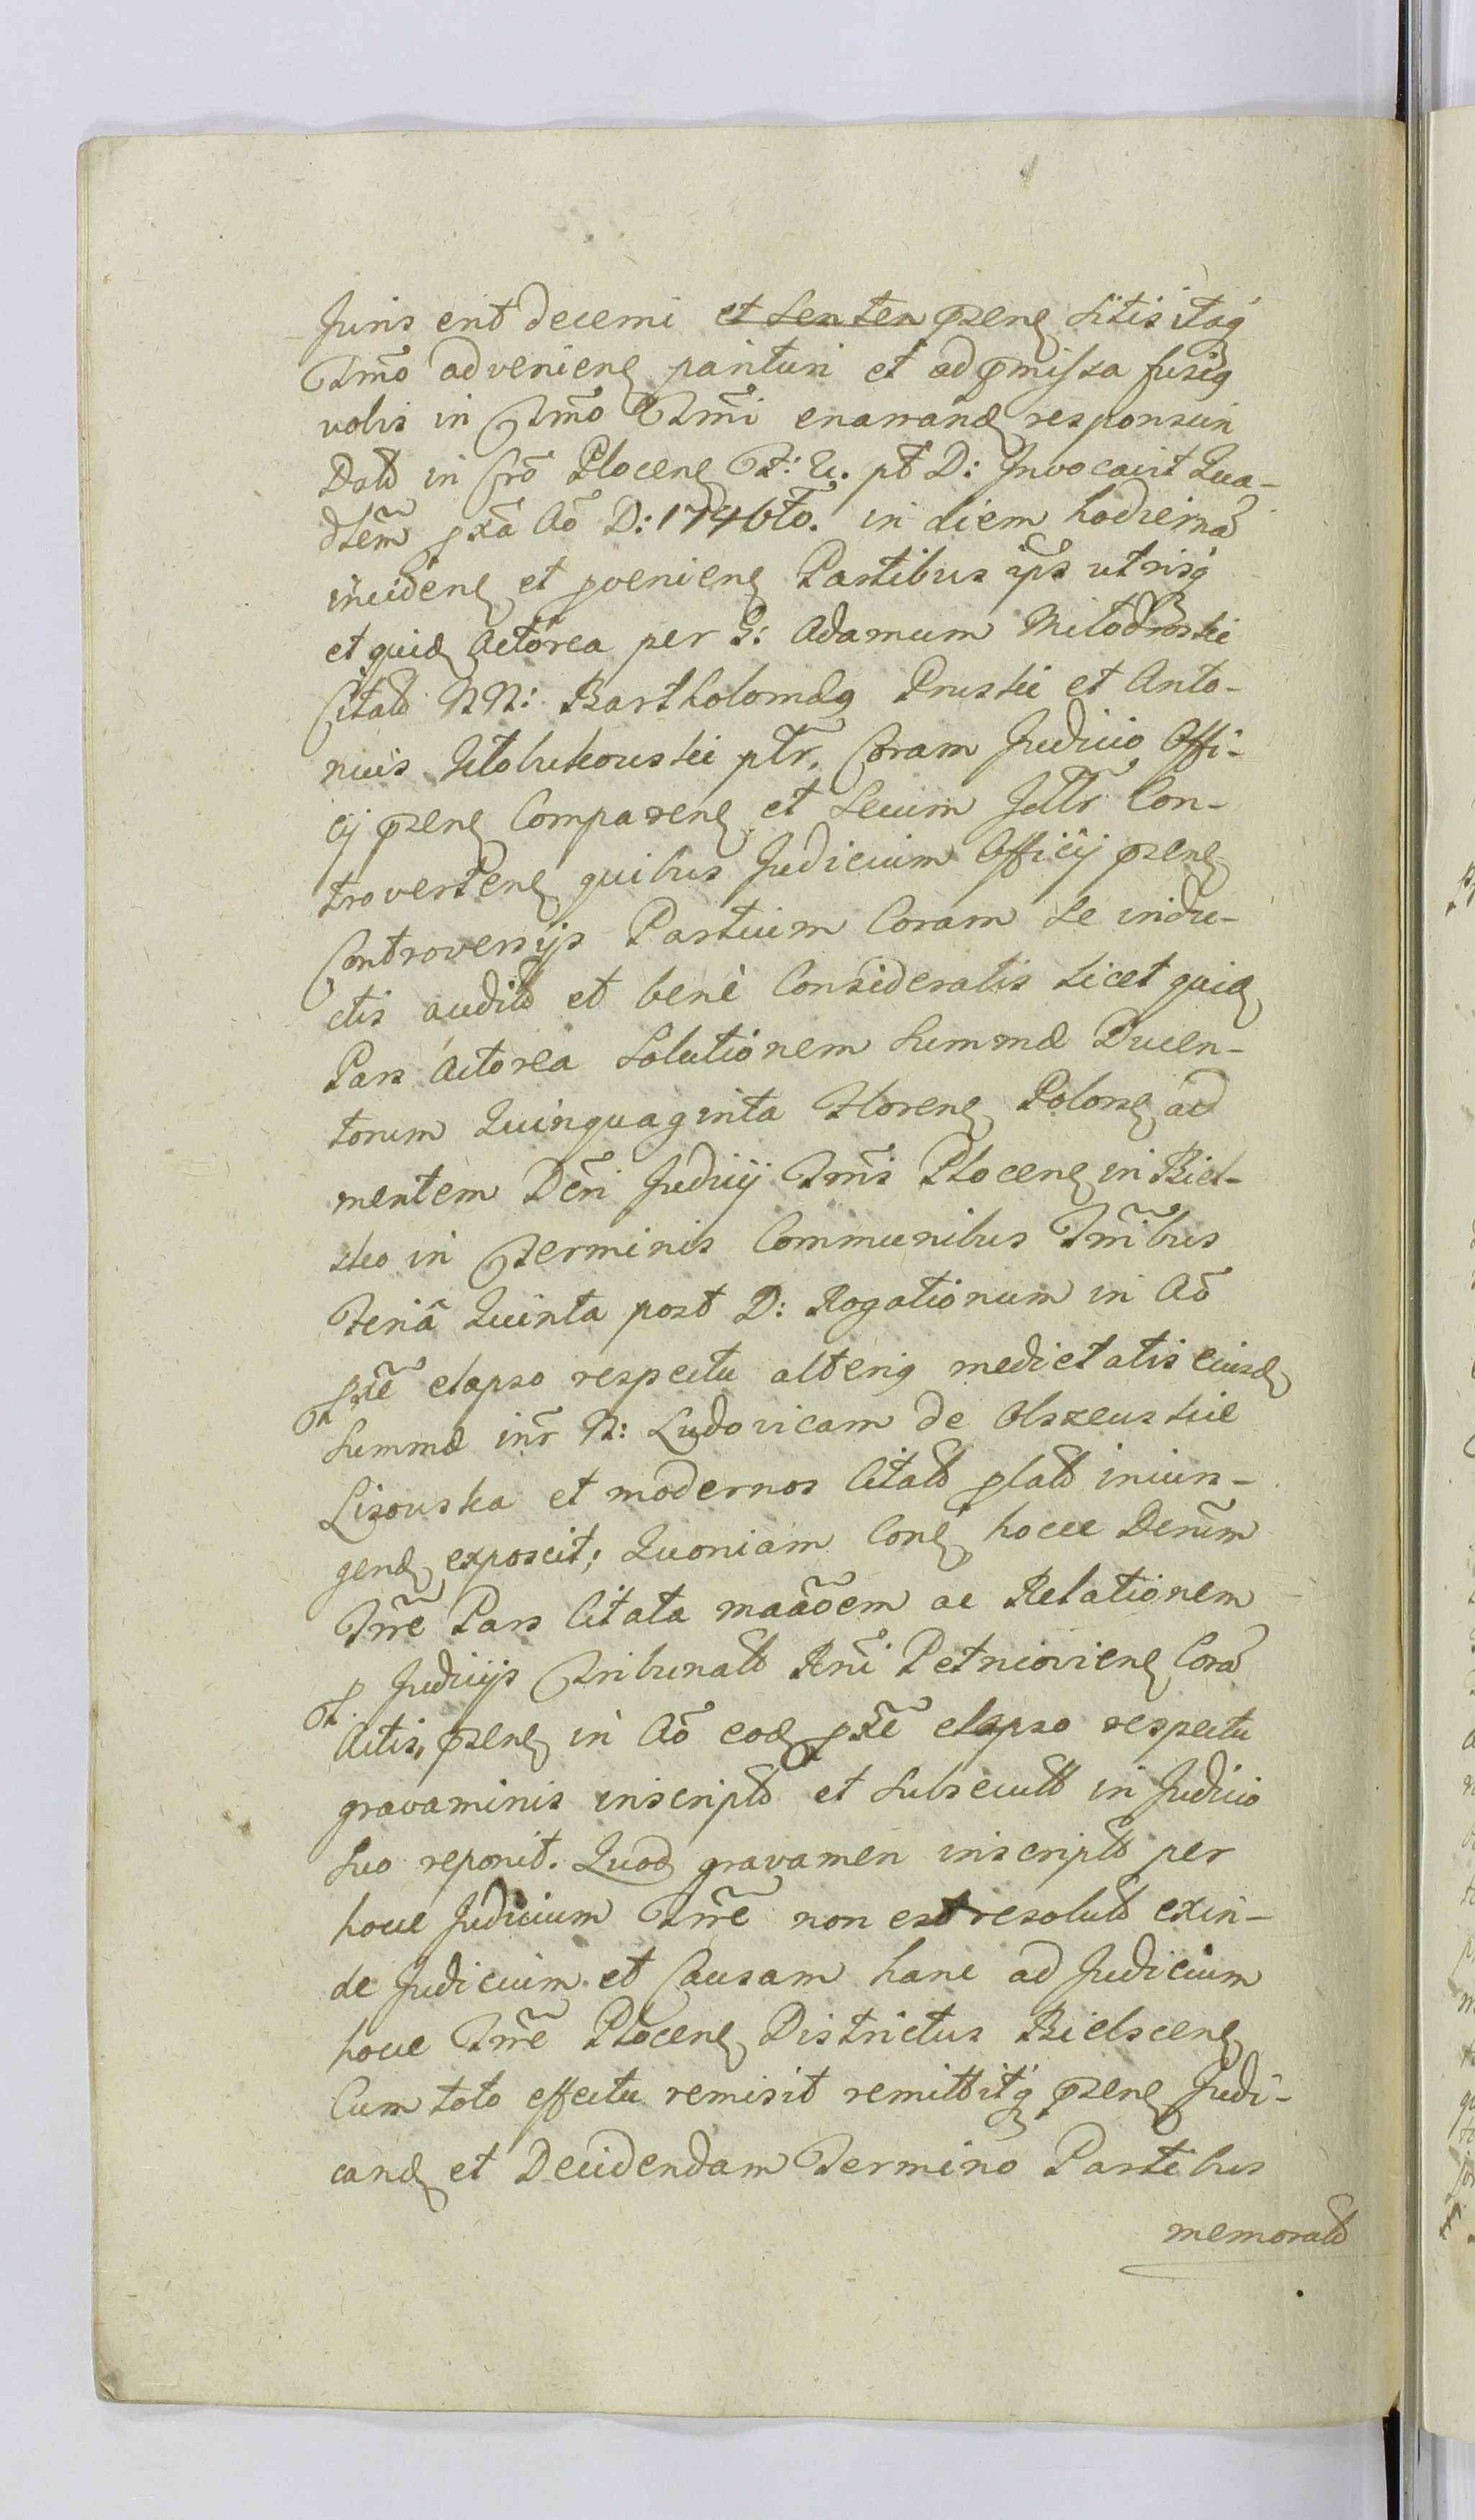 Juris erit decerni et Senten pzens Litis itaq
Tmo adveniens parituri et ad pmissa fusiq
vobis in Tmo Tmi enarrand responsuri
Datt in Cro Plocens F: V. pt D: Invocavit Qua-
dlem pxa Ao D: 1746to. in diem hodierna
incidens et pveniens Partibus ips utrisq
et quid Actorea per G: Adamum Miłodroski
Citatt NN: Bartholomaeq Pruski et Anto-
nius Kłobukouski ptr, Coram Judicio Offi-
cij pzens Comparens et Secum Jttr Con-
trovertens quibus Judicium Officij pzens
Controversijs Partium Coram Se indu-
ctis auditt et benè Consideratis licet quid
Pars Actorea Solutionem Summae Ducen-
torum Quinquaginta Florens Polons ad
mentem Dcri Judicij Tmis Plocens in Biel-
sko in Terminis Communibus Tmibus
Feriâ Quinta post D: Rogationum in Ao
pxe elapso respectu alteriq medietatis eiusd
Summae inr N: Ludovicam de Olszeuskie
Lisouska et modernos Citatt platt iniun-
gend exposcit; Quoniam Cons hocce Derum
Trre Pars Citata maaoem ac Relationem
Judicijs Tribunatt Rni Petricoviens Cora
Actis, pzens in Ao eod pxe elapso respectu
gravaminis inscriptt et Subsecutt in Judicio
Suo reponit. Quod gravamen inscriptt per
hocce Judicium Trre non est resolutt exin-
de Judicium et Causam hanc ad Judicium
hocce Trre Plocens Districtus Bielscens
Cum toto effectu remisit remittitq pzens Judi-
cand et Decidendam Termino Partibus
memoratt